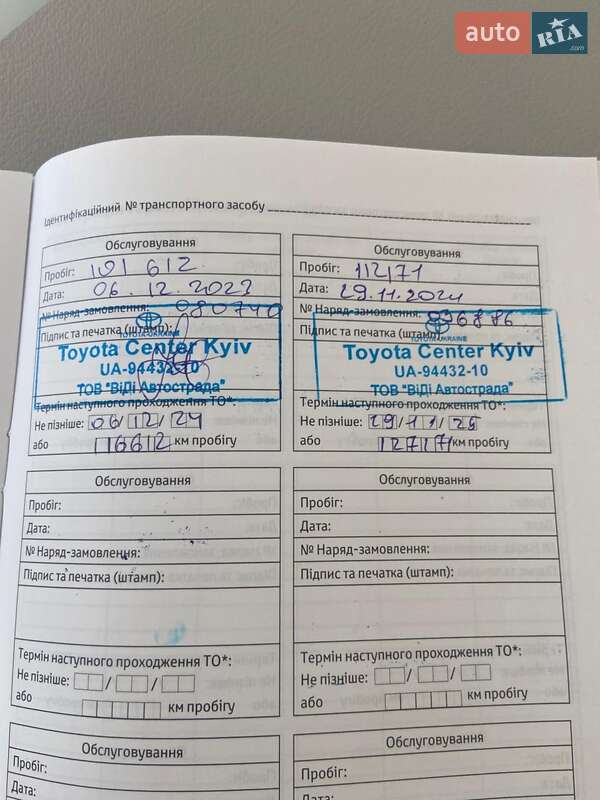 auto RIA.com
Ідентифікаційний № транспортного засобу
Обслуговування
Пробіг: 101 612
Дата: 06.12.2023
№ Наряд-замовлення: 080740
Підпис та печатка (штамп):
TOYOTA-UKRAINE
Toyota Center Kyiv
UA-94432-10
ТОВ "ВіДі Автострада"
Термін наступного проходження ТО*:
Не пізніше: 06/12/24
або 116612 км пробігу
Обслуговування
Пробіг: 112171
Дата: 29.11.2024
№ Наряд-замовлення: 096886
Підпис та печатка (штамп):
TOYOTA-UKRAINE
Toyota Center Kyiv
UA-94432-10
ТОВ "ВіДі Автострада"
Термін наступного проходження ТО*:
Не пізніше: 29/11/25
або 127171 км пробігу
Обслуговування
Пробіг:
Дата:
№ Наряд-замовлення:
Підпис та печатка (штамп):
Термін наступного проходження ТО*:
Не пізніше: / /
або км пробігу
Обслуговування
Пробіг:
Дата:
№ Наряд-замовлення:
Підпис та печатка (штамп):
Термін наступного проходження ТО*:
Не пізніше: / /
або км пробігу
Обслуговування
Пробіг:
Дата:
Обслуговування
Пробіг:
Дата: